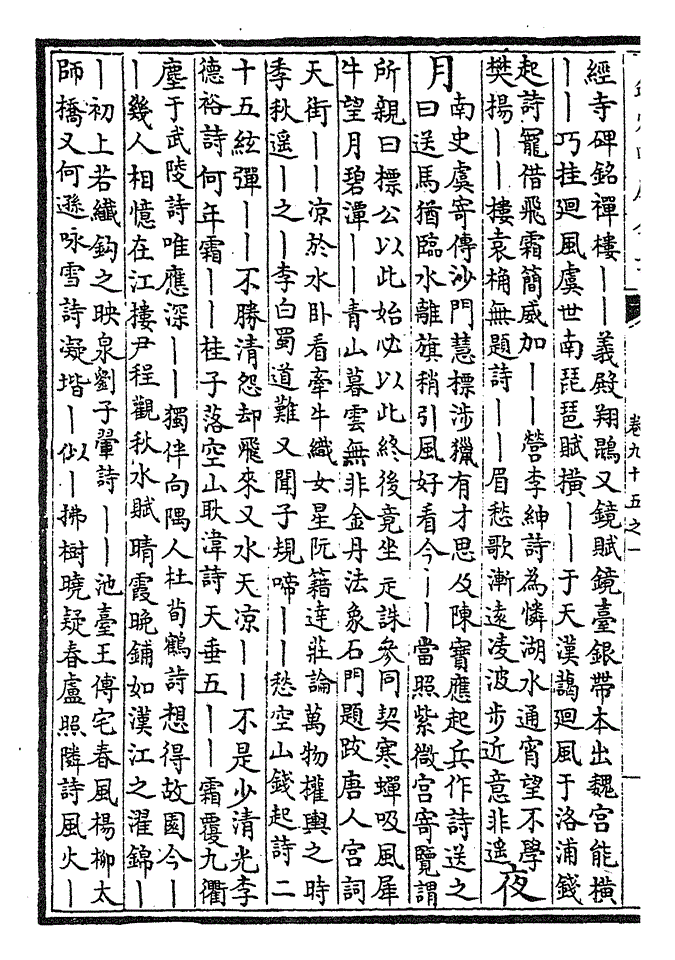 卷九十五之一
經寺碑銘禪樓——義殿翔鵾又鏡賦鏡臺銀帶本出魏宮能橫
——巧挂廻風虞世南琵琶賦橫——于天漢藹廻風于洛浦錢
起詩寵借飛霜簡威加——營李紳詩為憐湖水通宵望不學
樊揚——樓袁桷無題詩——眉愁歌漸遠凌波步近意非遥夜
月
南史虞寄傳沙門慧標涉獵有才思及陳寶應起兵作詩送之
曰送馬猶臨水離旗稍引風好看今——當照紫微宮寄覽謂
所親曰標公以此始必以此終後竟坐疋誅參同契寒蟬吸風犀
牛望月碧潭——青山暮雲無非金丹法象石門題跋唐人宮詞
天街——凉於水卧看牽牛織女星阮籍達莊論萬物權輿之時
季秋遥—之—李白蜀道難又聞子規啼——愁空山錢起詩二
十五絃彈——不勝清怨却飛來又水天凉——不是少清光李
德裕詩何年霜——桂子落空山耿湋詩天垂五——霜覆九衢
塵于武陵詩唯應深——獨伴向隅人杜荀鶴詩想得故園今—
—幾人相憶在江樓尹程觀秋水賦晴霞晚鋪如漢江之濯錦—
—初上若纖鈎之映泉劉子翬詩——池臺王傅宅春風楊柳太
師橋又何遜咏雪詩凝堦—似—拂樹曉疑春盧照隣詩風火—